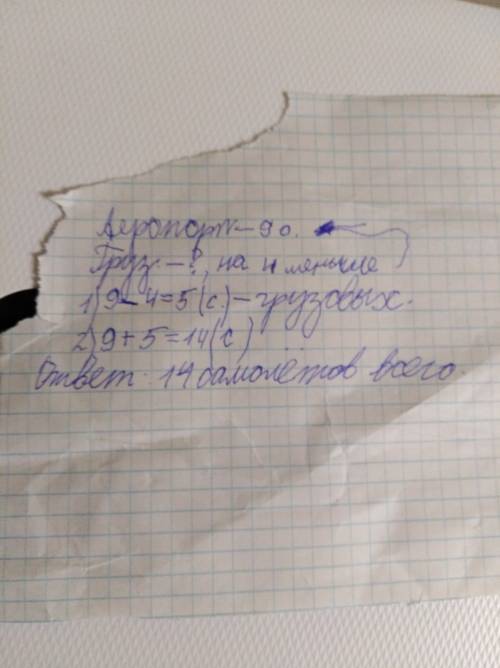 Аеропорт - 9 с.
Груз. - ?, на 4 меньше
1) 9 - 4 = 5 (с.) - грузовых.
2) 9 + 5 = 14 (с)
Ответ: 14 самолётов всего.